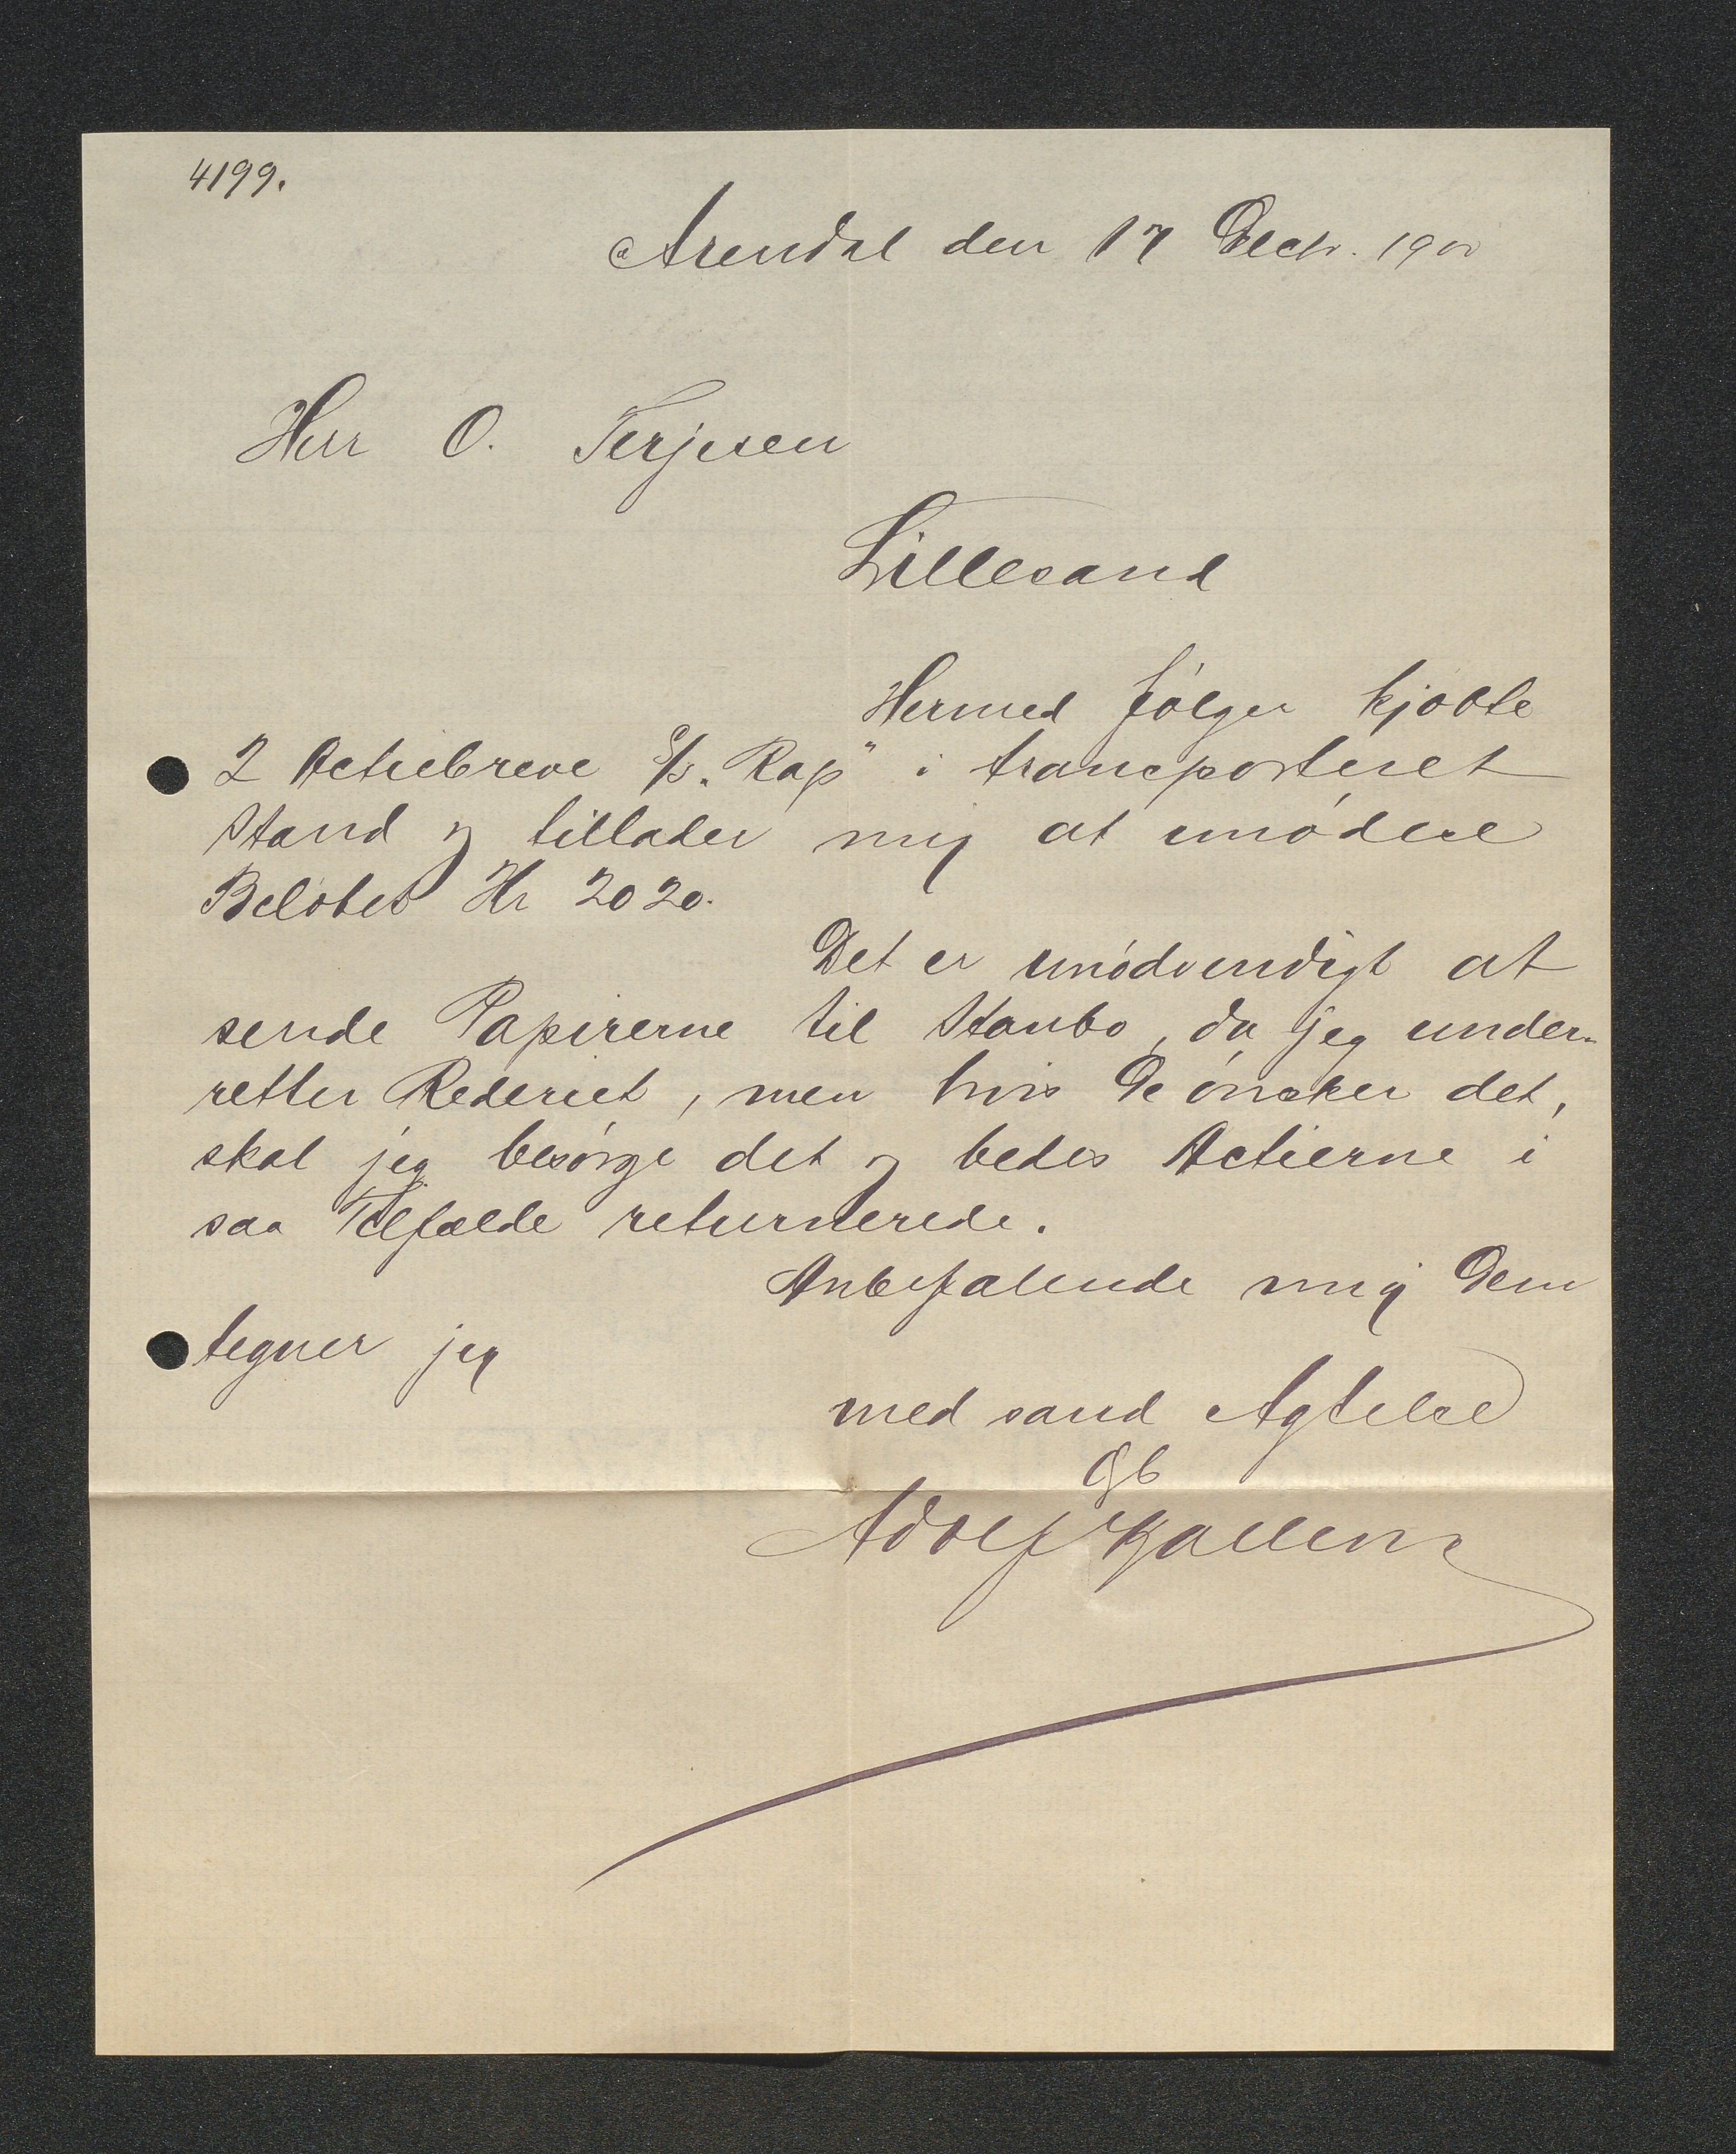 4199.
Arendal den 17 Decbr. 1900
Herr O. Terjesen
Lillesand
Hermed følger kjøbte
2 Actiebreve S/S. "Rap" i transporteret
Stand og tillader mig at imødese
Beløbet Kr 2020.
Det er unødvendigt at
sende Papirerne til Stanbo, da jeg under-
retter Rederiet, men hvis De ønsker det,
skal jeg besørge det og bedes Actierne i
saa Tilfælde returnerede.
Anbefalende mig Dem
tegner jeg
med sand Agtelse
Adolf